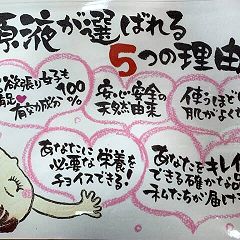 原液が選ばれる
5つの理由
欲張り女子も
満足♥
有効成分
100
%
安心安全の
天然由来
使うほど
肌がよく
あなたに
必要な栄養を
チョイスできる!
あなたをキレイ
できる確かな品
私たちが届け